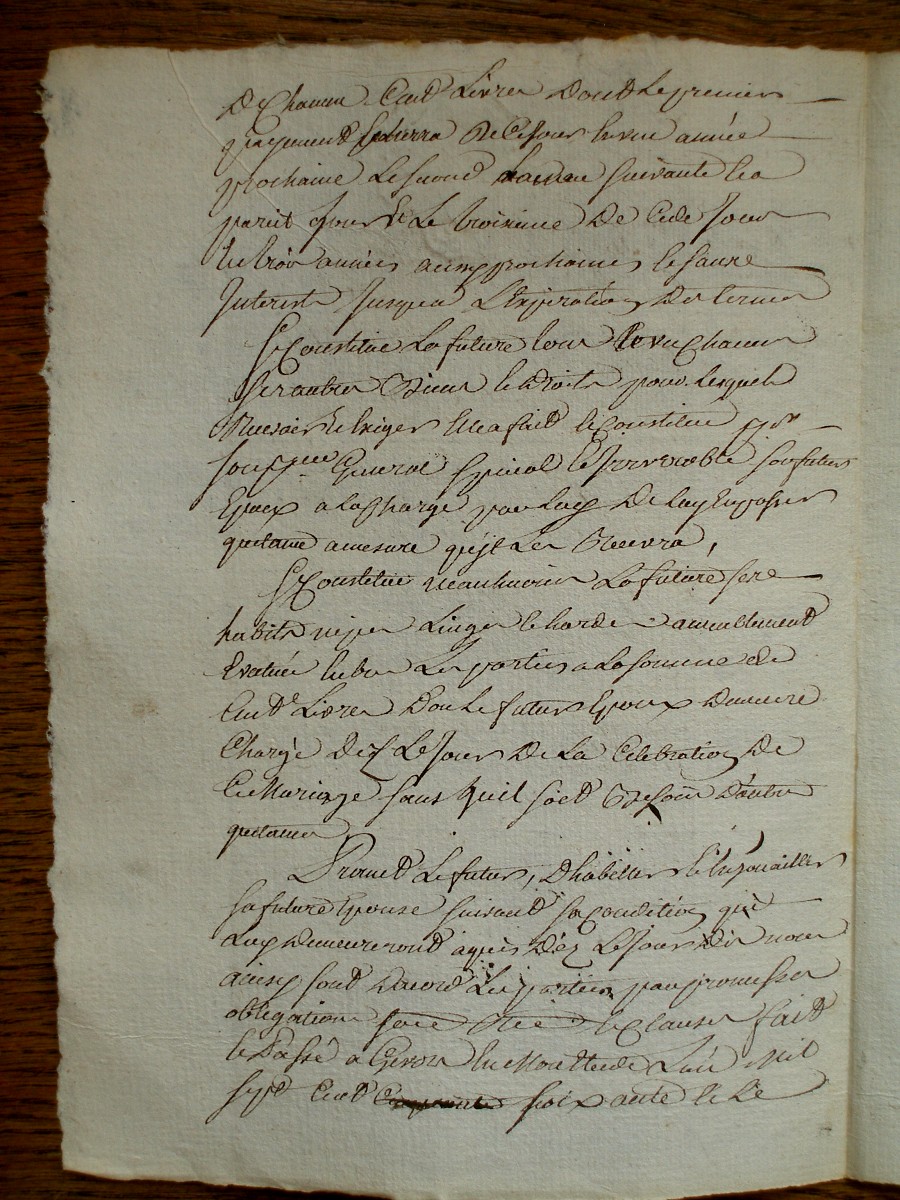 De Chacun Cent Livres Dont Le premier
payement De Ce Jour en une année
prochaine Le second Lannée suivante En
pareil Jour Et Le troisieme De Cede Jour
En trois années aussy prochaines Et sans
Interests Jusqua L'Expiration Des termes
Se Constitue La future tous
Ses autres Biens et droits pour Lesquels
Recevoir Et Exiger Elle a fait et Constitue pour
son General special et Irrevocable son futur
Epoux a La Charge par Luy De Luy En passer
quitance a mesure qu'il Les Recevra,
Se Constitue neanmoins La future Ses
habits nipes Linges et hardes amiablement
Evalués Entre Les parties a La somme de
Cent Livres Dont Le futur Epoux Demeure
Chargé Dez Le Jour De La Celebration De
Ce Mariage sans quil soit Besoin D'autre
quitance
Promet Le futur, D'habiller et Enjouailler
sa future Epouse suivant sa Condition qui
Luy Demeureront aquis Dez Le Jour Des noces
ainsy sont D'acord Les parties par promesses
obligations et Clauses fait
et Passé a En Lan Mil
sept Cent soixante et Le